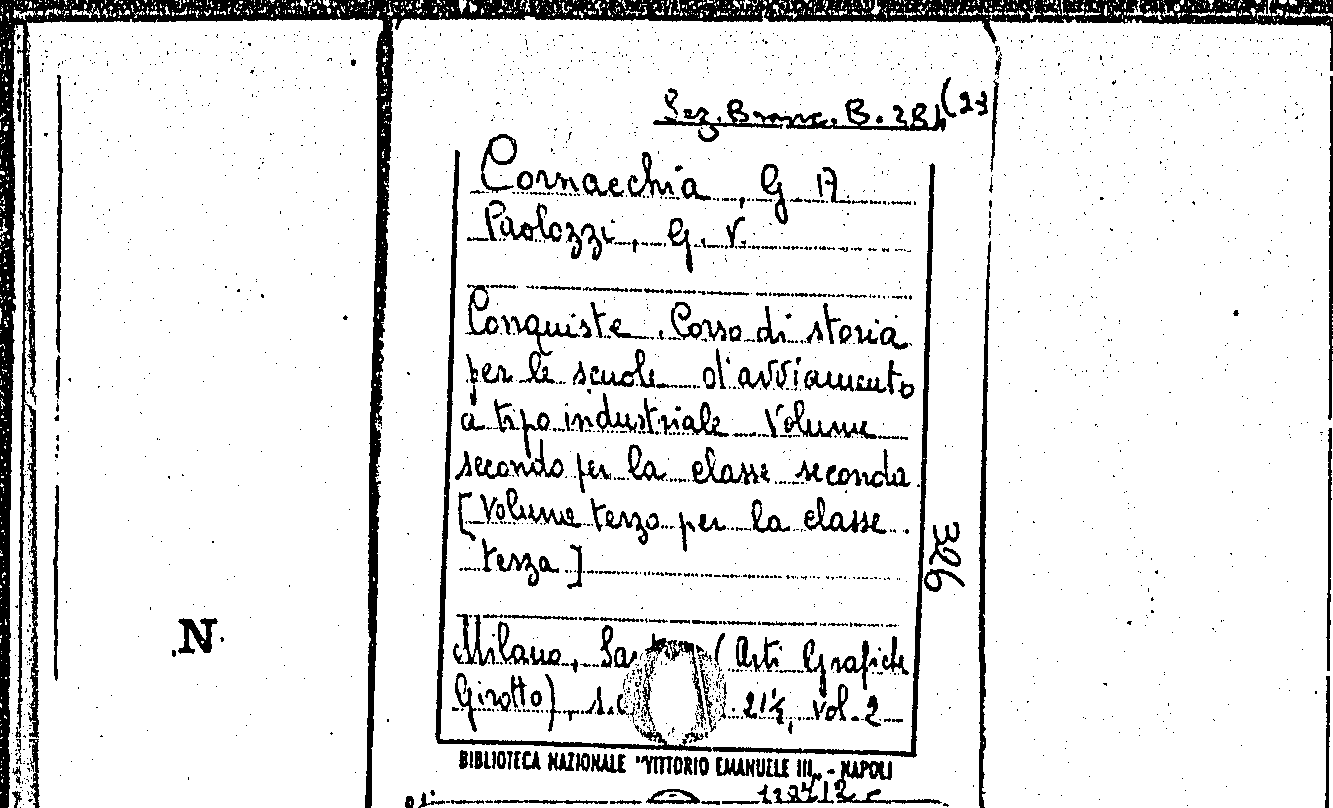 Sez. Branc. B. 2B4 (23
Cornacchia, G A
Paolozzi, G. V.
Conquiste. Corso di storia
per le scuole d'avviamento
a tipo industriale Volume
secondo per la classe seconda
[Volume terzo per la classe
terza]
326
N
Milano, (Arti Grafiche
Girotto), 21½, Vol. 2
BIBLIOTECA NAZIONALE "VITTORIO EMANUELE III" - NAPOLI